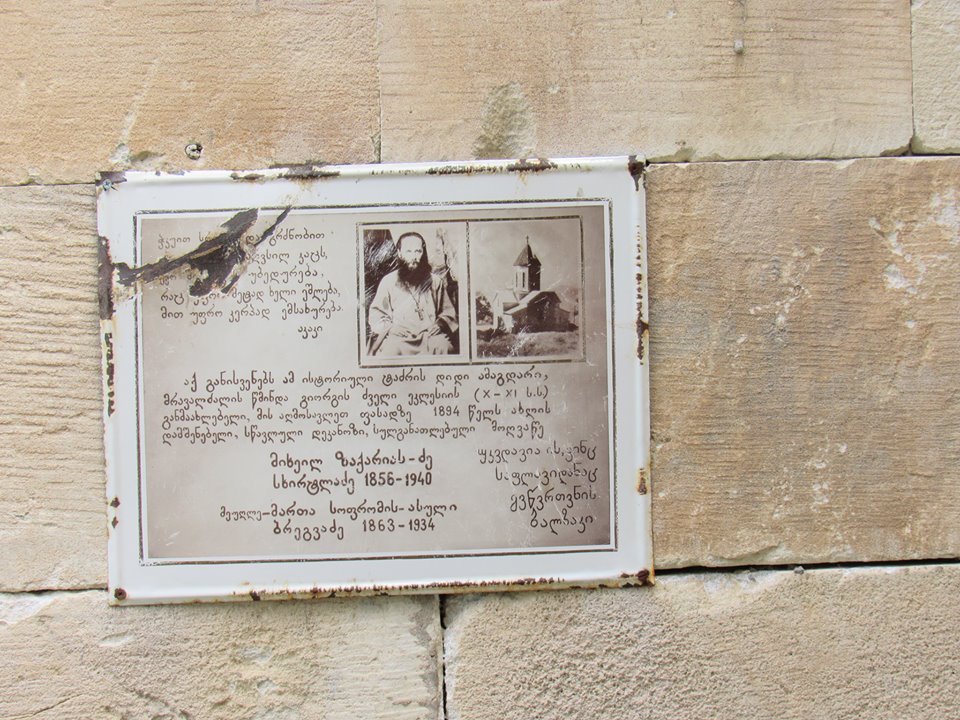 ჭკუით გრძნობით
აღვსილ კაცს,
უბედურება,
რაც მეტად ხელი ეშლება,
მით უფრო კერპად ემსახურება.
აკაკი
აქ განისვენებს ამ ისტორიული ტაძრის დიდი ამაგდარი,
მრავალძალის წმინდა გიორგის ძველი ეკლესიის (X-XI ს.ს)
განმაახლებელი, მის აღმოსავლეთ ფასადზე 1894 წელს ახლის
დამშენებელი, სწავლული დეკანოზი, სულგანათლებული მოღვაწე
მიხეილ ზაქარიას-ძე
სხირტლაძე 1856-1940
მეუღლე-მართა სოფრომის-ასული
ბრეგვაძე 1863-1934
უკვდავია ის, ვინც
საფლავიდანაც
გვწვრთვნის
ბალზაკი